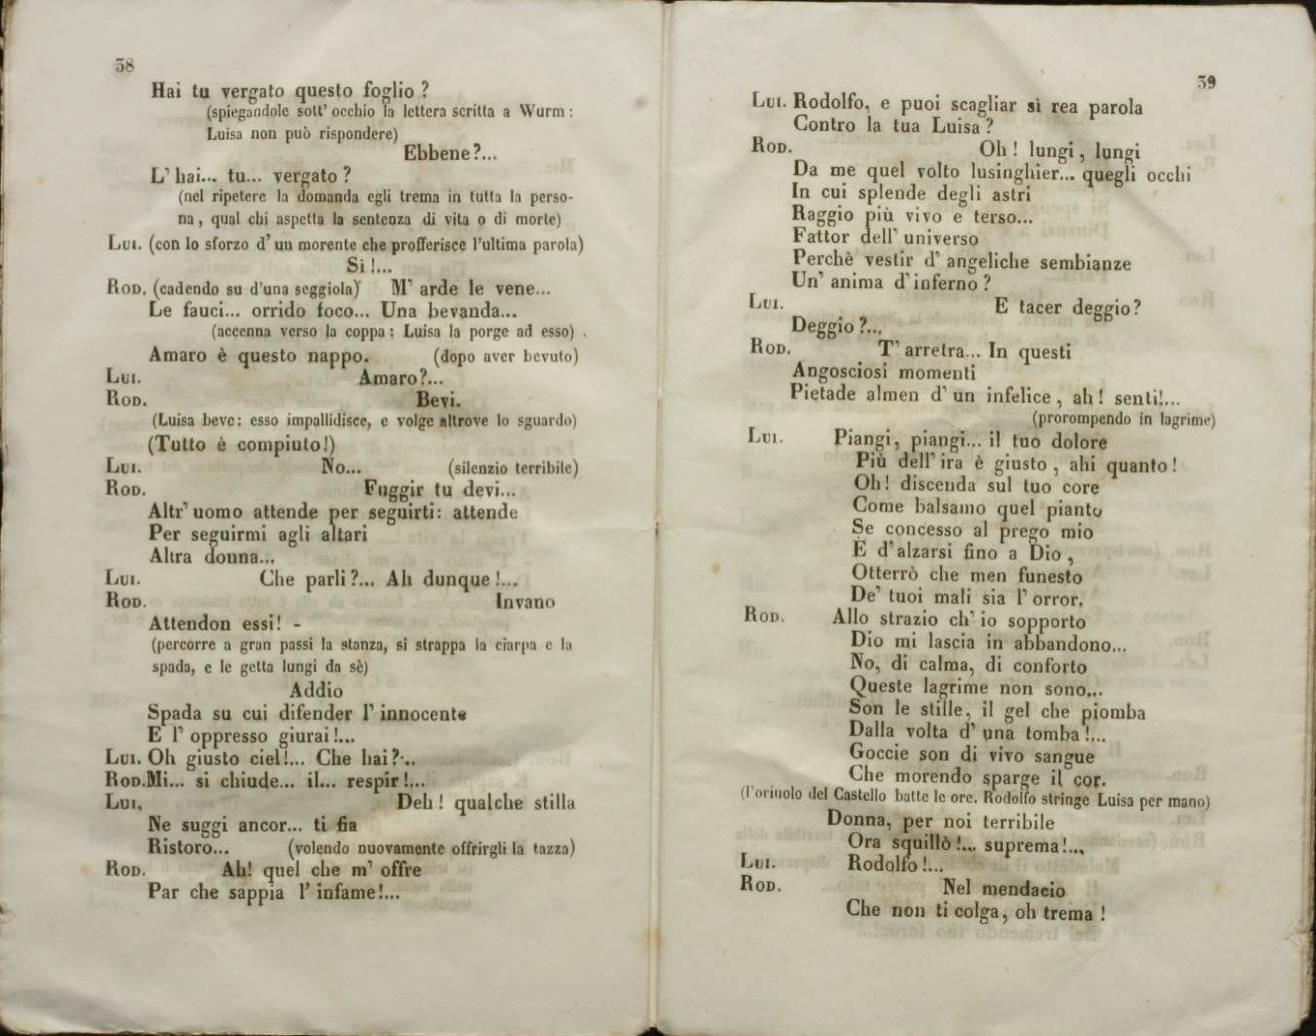 38
Hai tu vergato questo foglio ?
(spiegandole sott' occhio la lettera scritta a Wurm :
Luisa non può rispondere)
Ebbene?...
L' hai... tu... vergato ?
(nel ripetere la domanda egli trema in tutta la perso-
na , qual chi aspetta la sentenza di vita o di morte)
Lui. (con lo sforzo d' un morente che profferisce l'ultima parola)
Sì !...
Rod. (cadendo su d'una seggiola) M' arde le vene...
Le fauci... orrido foco... Una bevanda...
(accenna verso la coppa : Luisa la porge ad esso)
Amaro è questo nappo. (dopo aver bevuto)
Lui. Amaro?...
Rod. Bevi.
(Luisa beve: esso impallidisce, e volge altrove lo sguardo)
(Tutto è compiuto!)
Lui. No... (silenzio terribile)
Rod. Fuggir tu devi...
Altr' uomo attende per seguirti: attende
Per seguirmi agli altari
Altra donna...
Lui. Che parli ?... Ah dunque !...
Rod. Invano
Attendon essi! -
(percorre a gran passi la stanza, si strappa la ciarpa e la
spada, e le getta lungi da sè)
Addio
Spada su cui difender l' innocente
E l' oppresso giurai !...
Lui. Oh giusto ciel!... Che hai?...
Rod. Mi... si chiude... il... respir !...
Lui. Deh ! qualche stilla
Ne suggi ancor... ti fia
Ristoro... (volendo nuovamente offrirgli la tazza)
Rod. Ah! quel che m' offre
Par che sappia l' infame!...
39
Lui. Rodolfo, e puoi scagliar sì rea parola
Contro la tua Luisa ?
Rod. Oh ! lungi , lungi
Da me quel volto lusinghier... quegli occhi
In cui splende degli astri
Raggio più vivo e terso...
Fattor dell' universo
Perchè vestir d' angeliche sembianze
Un' anima d' inferno ?
Lui. E tacer deggio?
Deggio ?...
Rod. T' arretra... In questi
Angosciosi momenti
Pietade almen d' un infelice , ah ! senti!...
(prorompendo in lagrime)
Lui. Piangi, piangi... il tuo dolore
Più dell' ira è giusto , ahi quanto !
Oh ! discenda sul tuo core
Come balsamo quel pianto
Se concesso al prego mio
È d' alzarsi fino a Dio ,
Otterrò che men funesto
De' tuoi mali sia l' orror.
Rod. Allo strazio ch' io sopporto
Dio mi lascia in abbandono...
No, di calma, di conforto
Queste lagrime non sono...
Son le stille, il gel che piomba
Dalla volta d' una tomba !...
Goccie son di vivo sangue
Che morendo sparge il cor.
(l'oriuolo del Castello batte le ore. Rodolfo stringe Luisa per mano)
Donna, per noi terribile
Ora squillò !... suprema !...
Lui. Rodolfo !...
Rod. Nel mendacio
Che non ti colga, oh trema !